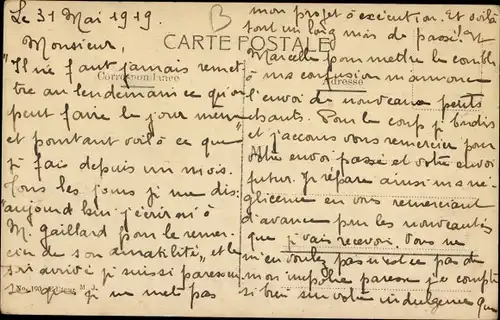 Le 31 Mai 1919.
Monsieur,
CARTE POSTALE
Correspondance
Adresse
"Il ne faut jamais remet
tre au lendemain ce qu'on
peut faire le jour meme"
et pourtant voilà ce que
je fais depuis un mois.
Tous les jours je me dis
"aujourd'hui j'écrirai à
M. Gaillard pour le remer-
cier de son amabilité", et le
soir arrivé je suis si paresseu
se que je ne met pas
mon projet à exécution. Et voilà
tout un long mois de passé! Et
Marcelle pour mettre le comble
à ma confusion m'annonce
l'envoi de nouveaux petits
chants. Pour le coup je bondis
et j'accours vous remercier pour
votre envoi passé et votre envoi
futur. Je répare ainsi ma né
gligence en vous remerciant
d'avance pour les nouveautés
que je vais recevoir. Vous ne
m'en voulez pas n'est ce pas de
mon impolie paresse je compte
si bien sur votre indulgence que